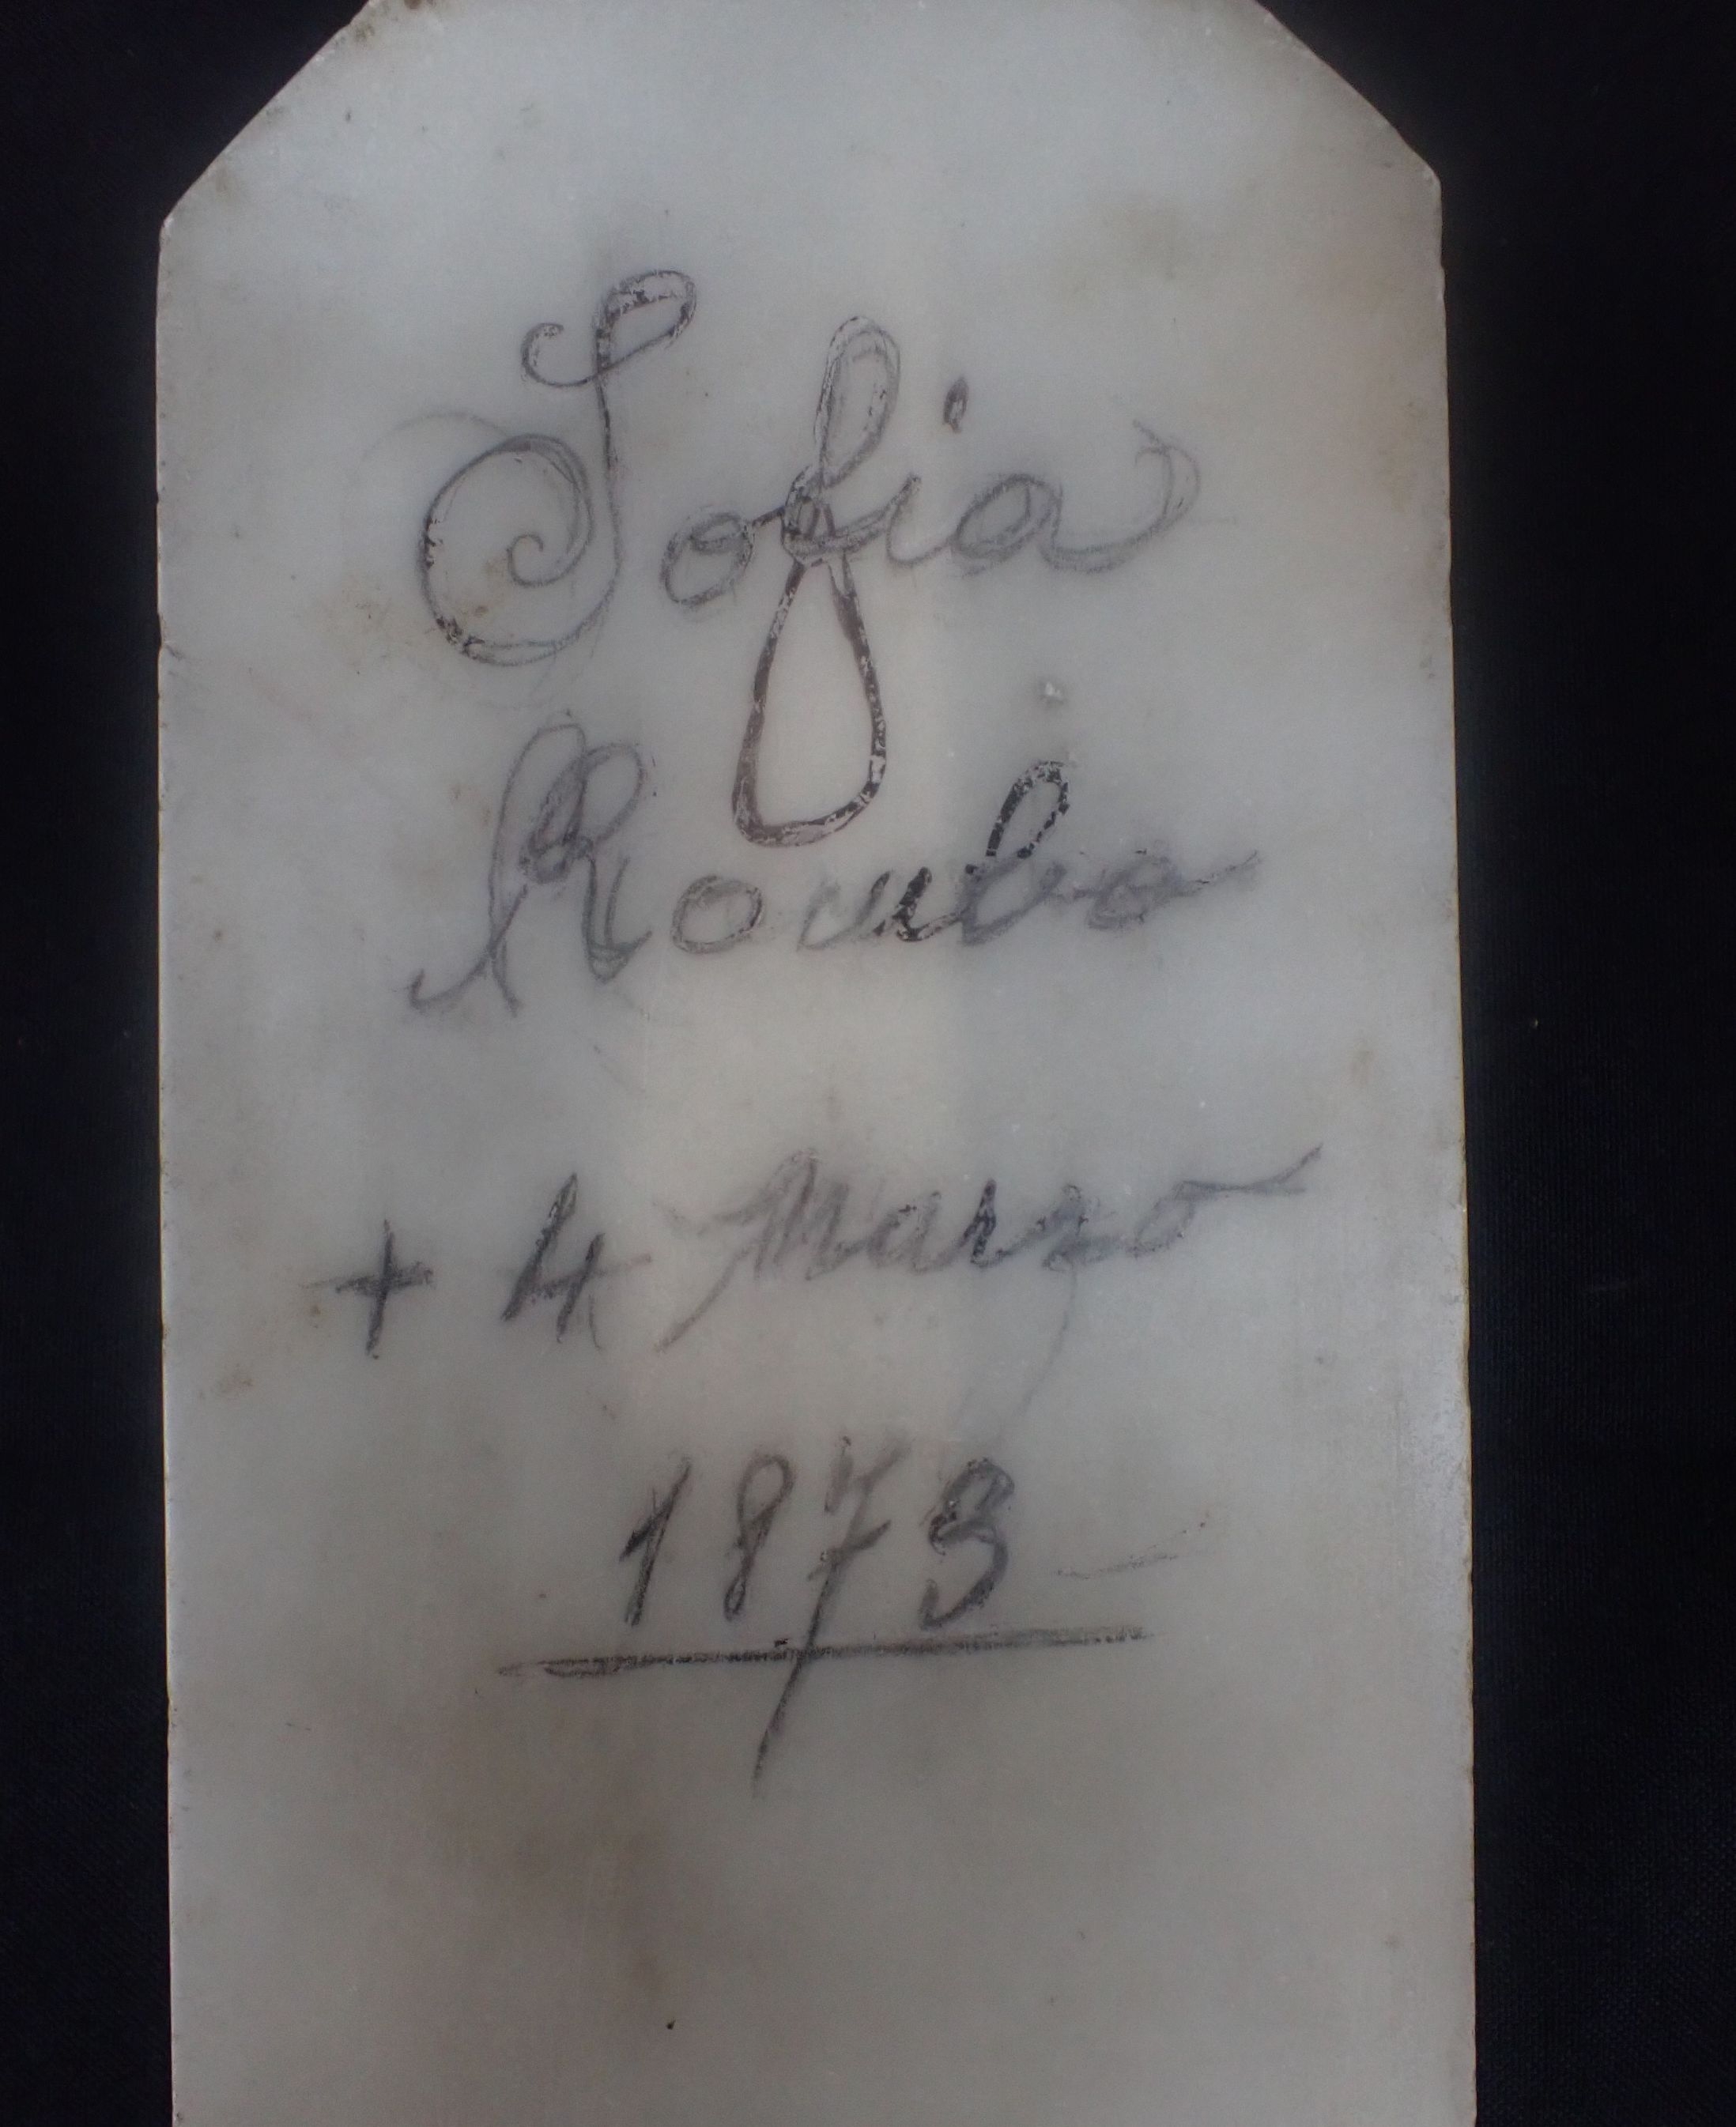 Sofia
Rombo
+ 4 Marzo
1873